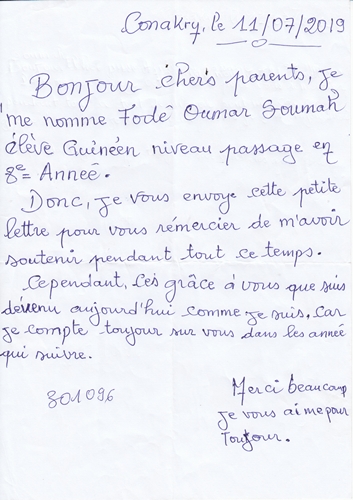 Conakry, le 11/07/2019
Bonjour chers parents, je
me nomme Fodé Oumar Soumah
élève Guinéen niveau passage en
8e Année.
Donc, je vous envoye cette petite
lettre pour vous rémercier de m'avoir
soutenir pendant tout ce temps.
Cependant, ces grâce à vous que suis
dévenu aujourd'hui comme je suis, car
je compte toujour sur vous dans les année
qui suivre.
301096
Merci beaucamp
je vous aime pour
Toujour.